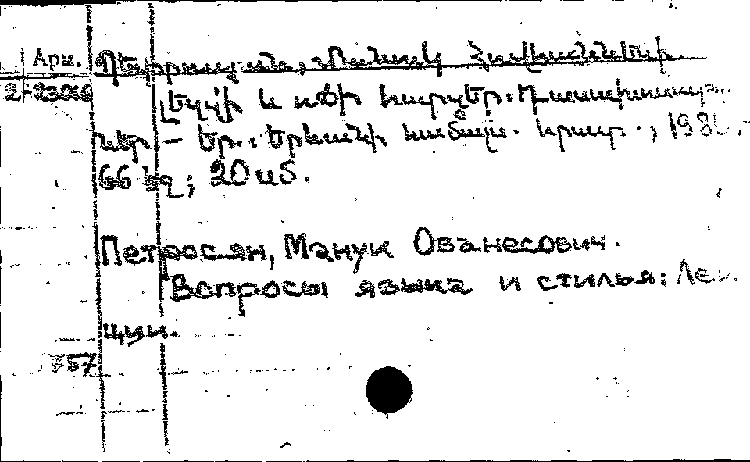 Арм. Պետրոսյան, Մանուկ Հովհաննեսի.
2-23066 Լեզվի և ոճի հարցեր: Դասախոսություն
ներ. – Եր.: Երևանի համալս. հրատ., 198
66 էջ; 20 սմ.
Петросян, Манук Ованесович.
Вопросы языка и стилья: Лек
ции.
757